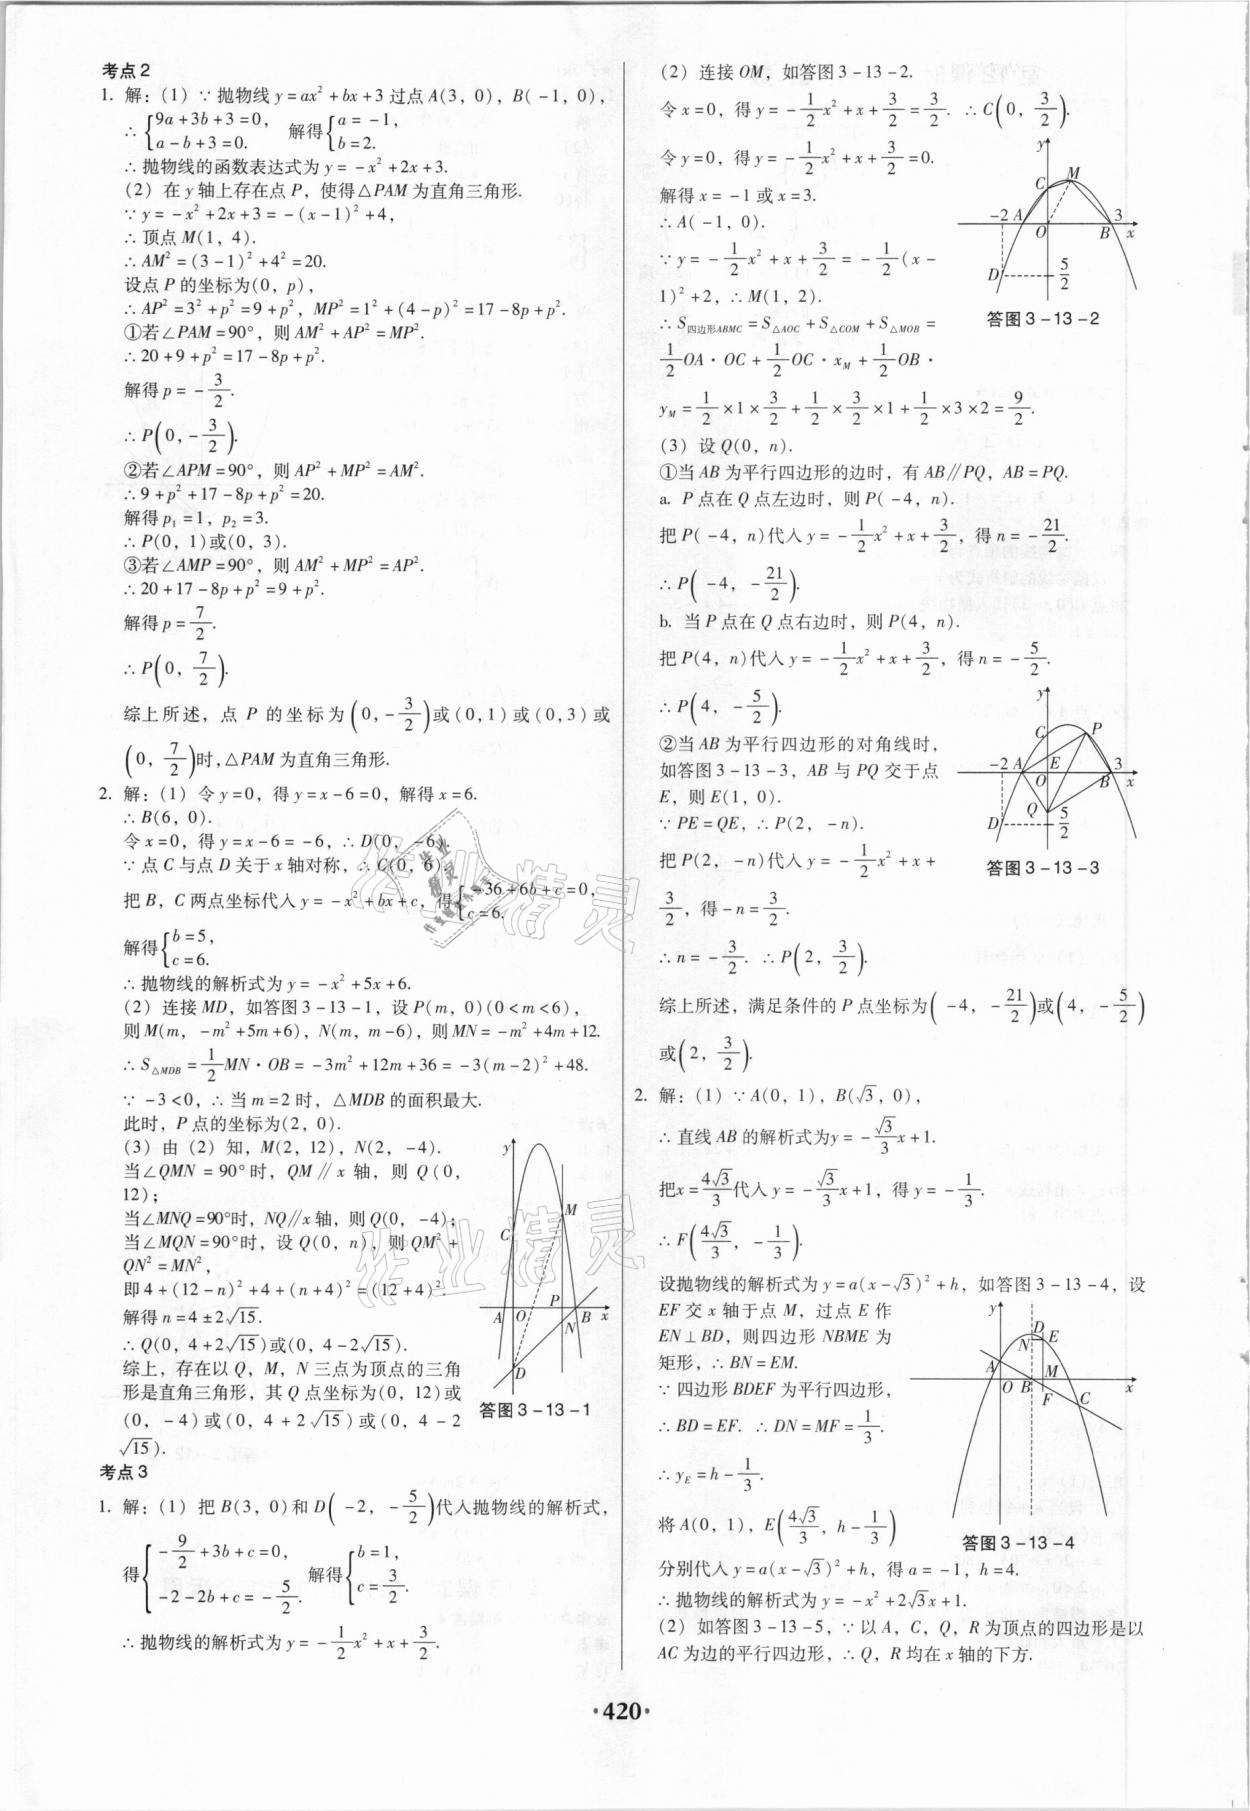 考点2
1. 解：(1) ∵抛物线y=ax²+bx+3过点A(3，0)，B(-1，0)，
∴{9a+3b+3=0，a-b+3=0. 解得{a=-1，b=2.
∴抛物线的函数表达式为y=-x²+2x+3.
(2) 在y轴上存在点P，使得△PAM为直角三角形.
∵y=-x²+2x+3=-(x-1)²+4，
∴顶点M(1，4).
∴AM²=(3-1)²+4²=20.
设点P的坐标为(0，p)，
∴AP²=3²+p²=9+p²，MP²=1²+(4-p)²=17-8p+p².
①若∠PAM=90°，则AM²+AP²=MP².
∴20+9+p²=17-8p+p².
解得p=-3/2.
∴P(0，-3/2).
②若∠APM=90°，则AP²+MP²=AM².
∴9+p²+17-8p+p²=20.
解得p₁=1，p₂=3.
∴P(0，1)或(0，3).
③若∠AMP=90°，则AM²+MP²=AP².
∴20+17-8p+p²=9+p².
解得p=7/2.
∴P(0，7/2).
综上所述，点P的坐标为(0，-3/2)或(0，1)或(0，3)或
(0，7/2)时，△PAM为直角三角形.
2. 解：(1) 令y=0，得y=x-6=0，解得x=6.
∴B(6，0).
令x=0，得y=x-6=-6，∴D(0，-6).
∵点C与点D关于x轴对称，∴C(0，6).
把B，C两点坐标代入y=-x²+bx+c，得{-36+6b+c=0，c=6.
解得{b=5，c=6.
∴抛物线的解析式为y=-x²+5x+6.
(2) 连接MD，如答图3-13-1，设P(m，0)(0<m<6)，
则M(m，-m²+5m+6)，N(m，m-6)，则MN=-m²+4m+12.
∴S△MDB=1/2MN·OB=-3m²+12m+36=-3(m-2)²+48.
∵-3<0，∴当m=2时，△MDB的面积最大.
此时，P点的坐标为(2，0).
(3) 由(2)知，M(2，12)，N(2，-4).
当∠QMN=90°时，QM∥x轴，则Q(0，
12)；
当∠MNQ=90°时，NQ∥x轴，则Q(0，-4)；
当∠MQN=90°时，设Q(0，n)，则QM²+
QN²=MN²，
即4+(12-n)²+4+(n+4)²=(12+4)².
解得n=4±2√15.
∴Q(0，4+2√15)或(0，4-2√15).
综上，存在以Q，M，N三点为顶点的三角
形是直角三角形，其Q点坐标为(0，12)或
(0，-4)或(0，4+2√15)或(0，4-2
√15).
y
M
C
P
A
O
N
B
x
D
答图3-13-1
考点3
1. 解：(1) 把B(3，0)和D(-2，-5/2)代入抛物线的解析式，
得{-9/2+3b+c=0，-2-2b+c=-5/2. 解得{b=1，c=3/2.
∴抛物线的解析式为y=-1/2x²+x+3/2.
(2) 连接OM，如答图3-13-2.
令x=0，得y=-1/2x²+x+3/2=3/2. ∴C(0，3/2).
令y=0，得y=-1/2x²+x+3/2=0.
解得x=-1或x=3.
∴A(-1，0).
∵y=-1/2x²+x+3/2=-1/2(x-
1)²+2，∴M(1，2).
∴S四边形ABMC=S△AOC+S△COM+S△MOB=
1/2OA·OC+1/2OC·xM+1/2OB·
yM=1/2×1×3/2+1/2×3/2×1+1/2×3×2=9/2.
y
C
M
-2
A
O
B
3
x
D
5/2
答图3-13-2
(3) 设Q(0，n).
①当AB为平行四边形的边时，有AB∥PQ，AB=PQ.
a. P点在Q点左边时，则P(-4，n).
把P(-4，n)代入y=-1/2x²+x+3/2，得n=-21/2.
∴P(-4，-21/2).
b. 当P点在Q点右边时，则P(4，n).
把P(4，n)代入y=-1/2x²+x+3/2，得n=-5/2.
∴P(4，-5/2).
②当AB为平行四边形的对角线时，
如答图3-13-3，AB与PQ交于点
E，则E(1，0).
∵PE=QE，∴P(2，-n).
把P(2，-n)代入y=-1/2x²+x+
3/2，得-n=3/2.
∴n=-3/2. ∴P(2，3/2).
y
C
P
-2
A
E
O
B
3
x
Q
D
5/2
答图3-13-3
综上所述，满足条件的P点坐标为(-4，-21/2)或(4，-5/2)
或(2，3/2).
2. 解：(1) ∵A(0，1)，B(√3，0)，
∴直线AB的解析式为y=-√3/3x+1.
把x=4√3/3代入y=-√3/3x+1，得y=-1/3.
∴F(4√3/3，-1/3).
设抛物线的解析式为y=a(x-√3)²+h，如答图3-13-4，设
EF交x轴于点M，过点E作
EN⊥BD，则四边形NBME为
矩形，∴BN=EM.
∵四边形BDEF为平行四边形，
∴BD=EF. ∴DN=MF=1/3.
∴yE=h-1/3.
将A(0，1)，E(4√3/3，h-1/3)
y
D
N
E
A
M
O
B
F
C
x
答图3-13-4
分别代入y=a(x-√3)²+h，得a=-1，h=4.
∴抛物线的解析式为y=-x²+2√3x+1.
(2) 如答图3-13-5，∵以A，C，Q，R为顶点的四边形是以
AC为边的平行四边形，∴Q，R均在x轴的下方.
·420·
作业精灵
作业精灵